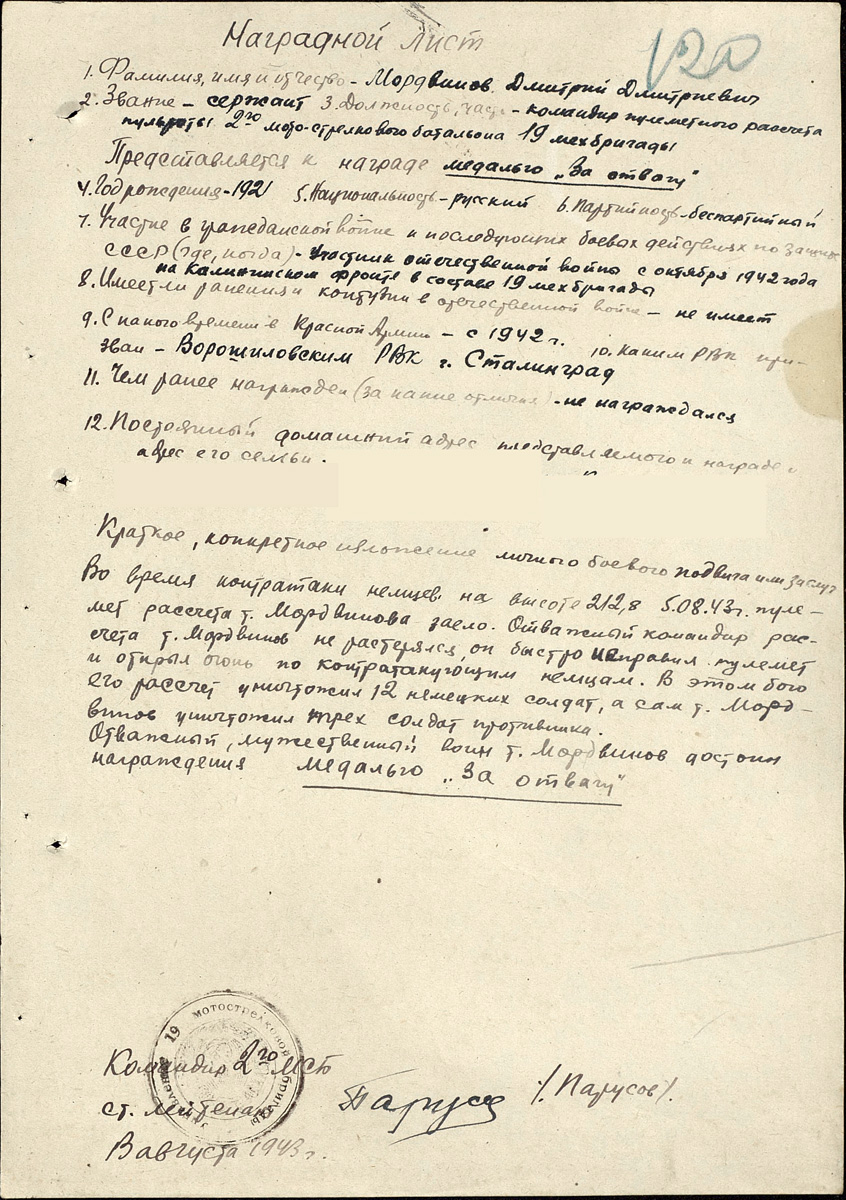 120
Наградной лист
1. Фамилия, имя и отчество - Мордвинов Дмитрий Дмитриевич
2. Звание - сержант 3. Должность, часть - командир пулеметного рассчета
пульроты 2го мото-стрелкового батальона 19 мехбригады
Представляется к награде медалью „За отвагу"
4. Год рождения - 1921 5. Национальность - русский 6. Партийность - беспартийный
7. Участие в гражданской войне и последующих боевых действиях по защите
СССР (где, когда) - Участник отечественной войны с октября 1942 года
на Калининском фронте в составе 19 мехбригады
8. Имеет ли ранения и контузии в отечественной войне - не имеет
9. С какого времени в Красной Армии - с 1942 г. 10. Каким РВК при-
зван - Ворошиловским РВК г. Сталинград
11. Чем ранее награжден (за какие отличия) - не награждался
12. Постоянный домашний адрес представляемого к награде и
адрес его семьи.
Краткое, конкретное изложение личного боевого подвига или заслуг
Во время контратаки немцев на высоте 212,8 5.08.43г. пуле-
мет рассчета т. Мордвинова заело. Отважный командир рас-
счета т. Мордвинов не растерялся, он быстро исправил пулемет
и открыл огонь по контратакующим немцам. В этом бою
его рассчет уничтожил 12 немецких солдат, а сам т. Морд-
винов уничтожил трех солдат противника.
Отважный, мужественный воин т. Мордвинов достоин
награждения медалью „За отвагу"
19 мотострелковой бригады
Командир 2го МСБ
ст. лейтенант
Парусов /Парусов/.
8 августа 1943 г.